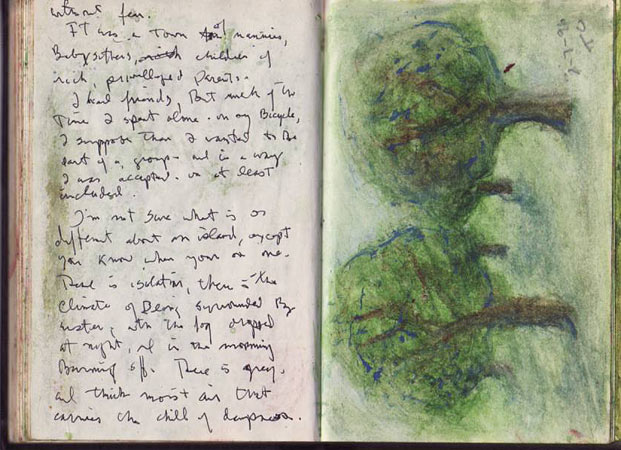 without fear.
IT was a Town of nannies,
Babysitters, children of
rich, privilleged Parents.
I had friends, But much of the
Time I spent alone. on my Bicycle,
I suppose that I wanted to Be
part of a group - and in a way
I was accepted - or at least
included.
I'm not sure what is so
different about an island, except
you know when your on one.
There is isolation, there is the
climate of Being surrounded By
water, with the fog dropped
at night, and in the morning
Burning off. There is grey,
and thick moist air that
carries the chill of dampness.